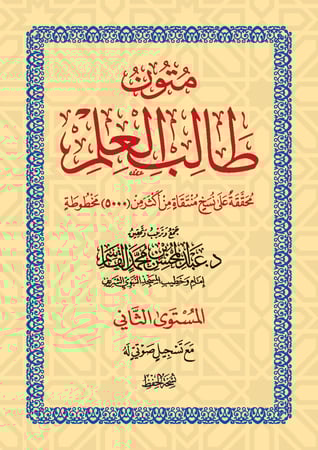 متون
طالب العلم
محققة على نسخ منتقاة من أكثر من (٥٠٠٠) مخطوطة
جمع وترتيب وتحقيق
د. عبد المحسن بن محمد القاسم
إمام وخطيب المسجد النبوي الشريف
المُسْتَوَى الثَّانِي
مَعَ تَسْجِيلٍ صَوْتِيٍّ لَهُ
نسخة الحفظ